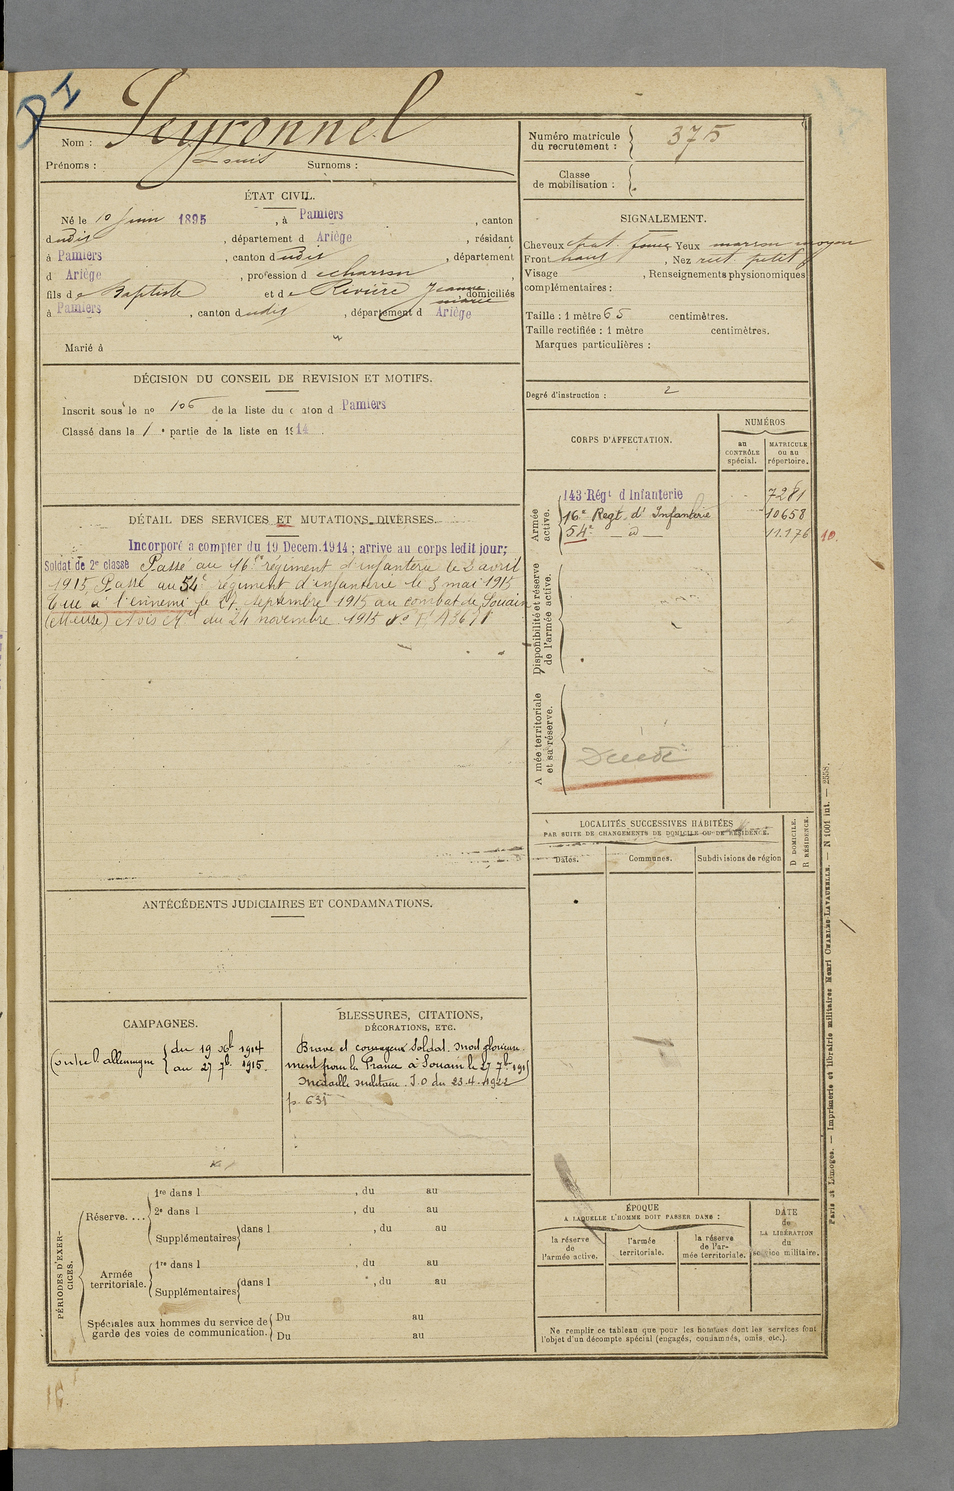 DI
Nom : Peyronnel
Prénoms : Louis Surnoms :
Numéro matricule du recrutement : 375
Classe de mobilisation :
ÉTAT CIVIL.
Né le 10 Juin 1895, à Pamiers, canton
dudit, département d Ariège, résidant
à Pamiers, canton dudit, département
d Ariège, profession de charron,
fils de Baptiste et de Rivière Jeanne marie, domiciliés
à Pamiers, canton dudit, département d Ariège
Marié à
SIGNALEMENT.
Cheveux chat. foncé Yeux marron moyen
Front haut, Nez rect. petit
Visage, Renseignements physionomiques
complémentaires :
Taille : 1 mètre 65 centimètres.
Taille rectifiée : 1 mètre centimètres.
Marques particulières :
Degré d'instruction : 2
DÉCISION DU CONSEIL DE REVISION ET MOTIFS.
Inscrit sous le no 106 de la liste du canton d Pamiers
Classé dans la 1e partie de la liste en 1914
DÉTAIL DES SERVICES ET MUTATIONS DIVERSES.
Incorporé a compter du 19 Decem. 1914 ; arrive au corps ledit jour;
Soldat de 2e classe Passé au 16e régiment d'infanterie le 3 avril
1915. Passé au 54e régiment d'infanterie le 3 mai 1915
Tué à l'ennemi le 27 septembre 1915 au combat de Souain
(Meuse) Avis Mel du 24 novembre 1915
CORPS D'AFFECTATION.
NUMÉROS
au CONTRÔLE spécial.
MATRICULE ou au répertoire.
Armée active.
143 Régt d Infanterie 7281
16e Regt. d'Infanterie 10658
54e — d° — 11.176 10.
Disponibilité et réserve de l'armée active.
Armée territoriale et sa réserve.
Décédé
LOCALITÉS SUCCESSIVES HABITÉES
PAR SUITE DE CHANGEMENTS DE DOMICILE OU DE RÉSIDENCE.
Dates. Communes. Subdivisions de région
D DOMICILE.
R RÉSIDENCE.
ANTÉCÉDENTS JUDICIAIRES ET CONDAMNATIONS.
CAMPAGNES.
Contre l'allemagne
du 19 Xbre 1914
au 27 7bre 1915.
BLESSURES, CITATIONS,
DÉCORATIONS, ETC.
Brave et courageux Soldat. Mort glorieuse
ment pour la France à Souain le 27 7bre 1915
Médaille militaire. J.O du 23.4.1922
p. 631
PÉRIODES D'EXERCICES.
Réserve....
1re dans l , du au
2e dans l , du au
Supplémentaires dans l , du au
Armée territoriale.
1re dans l , du au
Supplémentaires dans l , du au
Spéciales aux hommes du service de garde des voies de communication.
Du au
Du au
ÉPOQUE
A LAQUELLE L'HOMME DOIT PASSER DANS :
la réserve de l'armée active.
l'armée territoriale.
la réserve de l'armée territoriale.
DATE de LA LIBÉRATION du service militaire.
Ne remplir ce tableau que pour les hommes dont les services font
l'objet d'un décompte spécial (engagés, condamnés, omis, etc.).
Paris et Limoges. — Imprimerie et librairie militaires Henri CHARLES-LAVAUZELLE. — N 1001 int. — 2558.